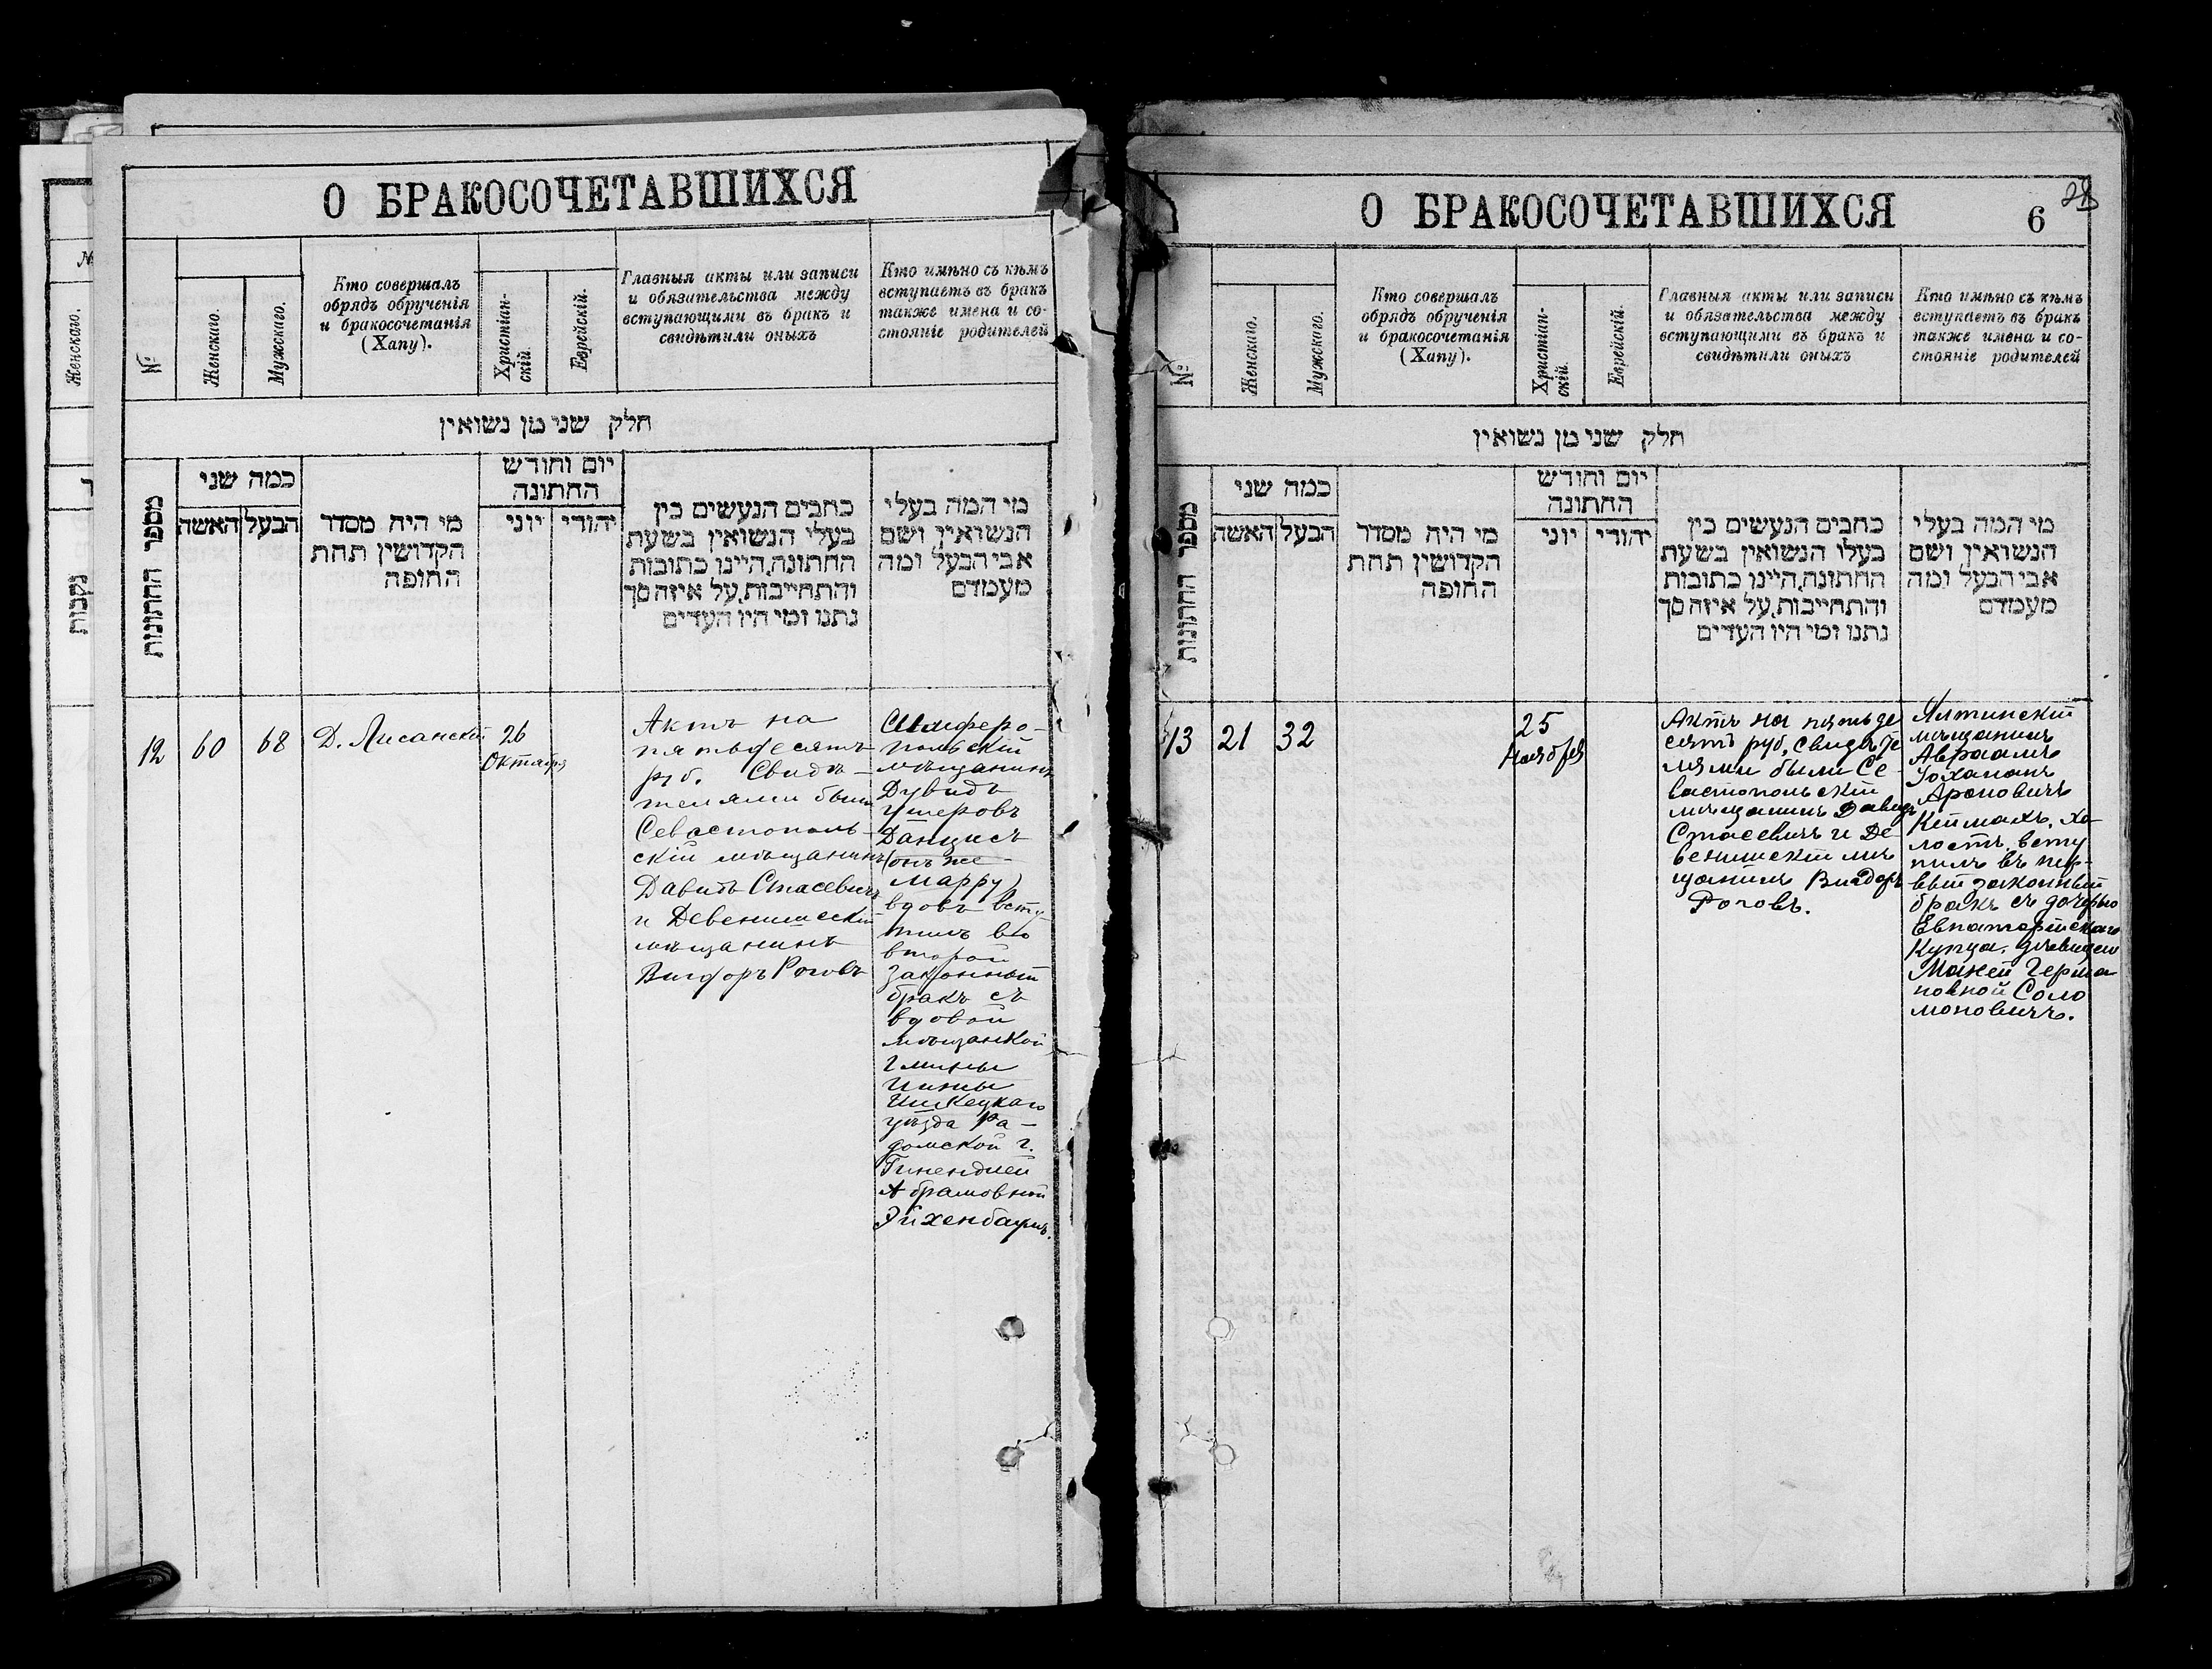 О БРАКОСОЧЕТАВШИХСЯ
№
Женскаго.
Мужскаго.
Кто совершалъ
обрядъ обрученія
и бракосочетанія
(Хапу).
Христіан-
скій.
Еврейскій.
Главныя акты или записи
и обязательства между
вступающими въ бракъ и
свидѣтили оныхъ
Кто имѣно съ кѣмъ
вступаетъ въ бракъ
также имена и со-
стояніе родителей
חלק שני מן נשואין
מספר החתונות
כמה שני
האשה
הבעל
מי היה מסדר
הקדושין תחת
החופה
יום וחודש
החתונה
יוני
יהודי
כתבים הנעשים בין
בעלי הנשואין בשעת
החתונה, היינו כתובות
והתחייבות, על איזה סך
נתנו ומי היו העדים
מי המה בעלי
הנשואין ושם
אבי הבעל ומה
מעמדם
12
60
68
Д. Лисанскій
26
Октября
Актъ на
пятьдесятъ
руб. Свидѣ-
телями были
Севастополь-
скій мѣщанинъ
Давидъ Стасевичъ
и Девенишескій
мѣщанинъ
Вигдоръ Роговъ
Симферо-
польскій
мѣщанинъ
Дувидъ
Умеровъ
Данцисъ
(онъ же
Марру)
вдовъ всту-
пилъ во
второй
законный
бракъ съ
вдовой
мѣщанкой
гмины
Илжецкаго
уѣзда Ра-
домской г.
Гинендлей
Абрамовной
Эйхенбаумъ.
Женскаго.
נקבות
О БРАКОСОЧЕТАВШИХСЯ
6
28
№
Женскаго.
Мужскаго.
Кто совершалъ
обрядъ обрученія
и бракосочетанія
(Хапу).
Христіан-
скій.
Еврейскій.
Главныя акты или записи
и обязательства между
вступающими въ бракъ и
свидѣтили оныхъ
Кто имѣно съ кѣмъ
вступаетъ въ бракъ
также имена и со-
стояніе родителей
חלק שני מן נשואין
מספר החתונות
כמה שני
האשה
הבעל
מי היה מסדר
הקדושין תחת
החופה
יום וחודש
החתונה
יוני
יהודי
כתבים הנעשים בין
בעלו הנשואין בשעת
החתונה, היינו כתובות
והתחייבות, על איזה סך
נתנו ומי היו העדים
מי המה בעלי
הנשואין ושם
אבי הבעל ומה
מעמדם
13
21
32
25
Ноября
Актъ на пятьде
сятъ руб. Свидѣте
лями были Се-
вастопольскій
мѣщанинъ Давидъ
Стасевичъ и Де
венишескій мѣ
щанинъ Вигдоръ
Роговъ.
Ялтинскій
мѣщанинъ
Авраамъ
Іохананъ
Ароновичъ
Кеймахъ, хо-
лостъ, всту
пилъ въ пер-
вый законный
бракъ съ дочерью
Евпаторійскаго
Купца, дѣвицей
Маней Герма
новной Соло
моновичъ.